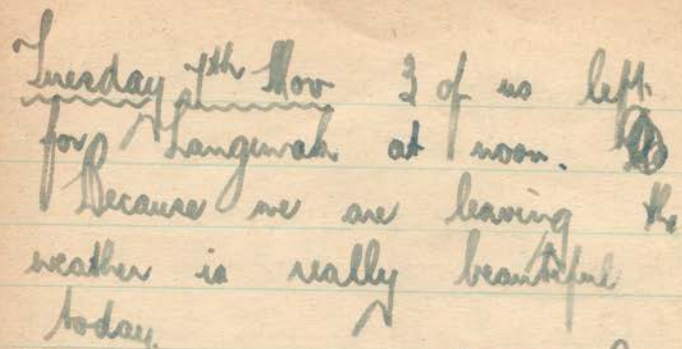 Tuesday 7th Nov 3 of us left
for at noon.
Because we are leaving the
weather is really beautiful
today.